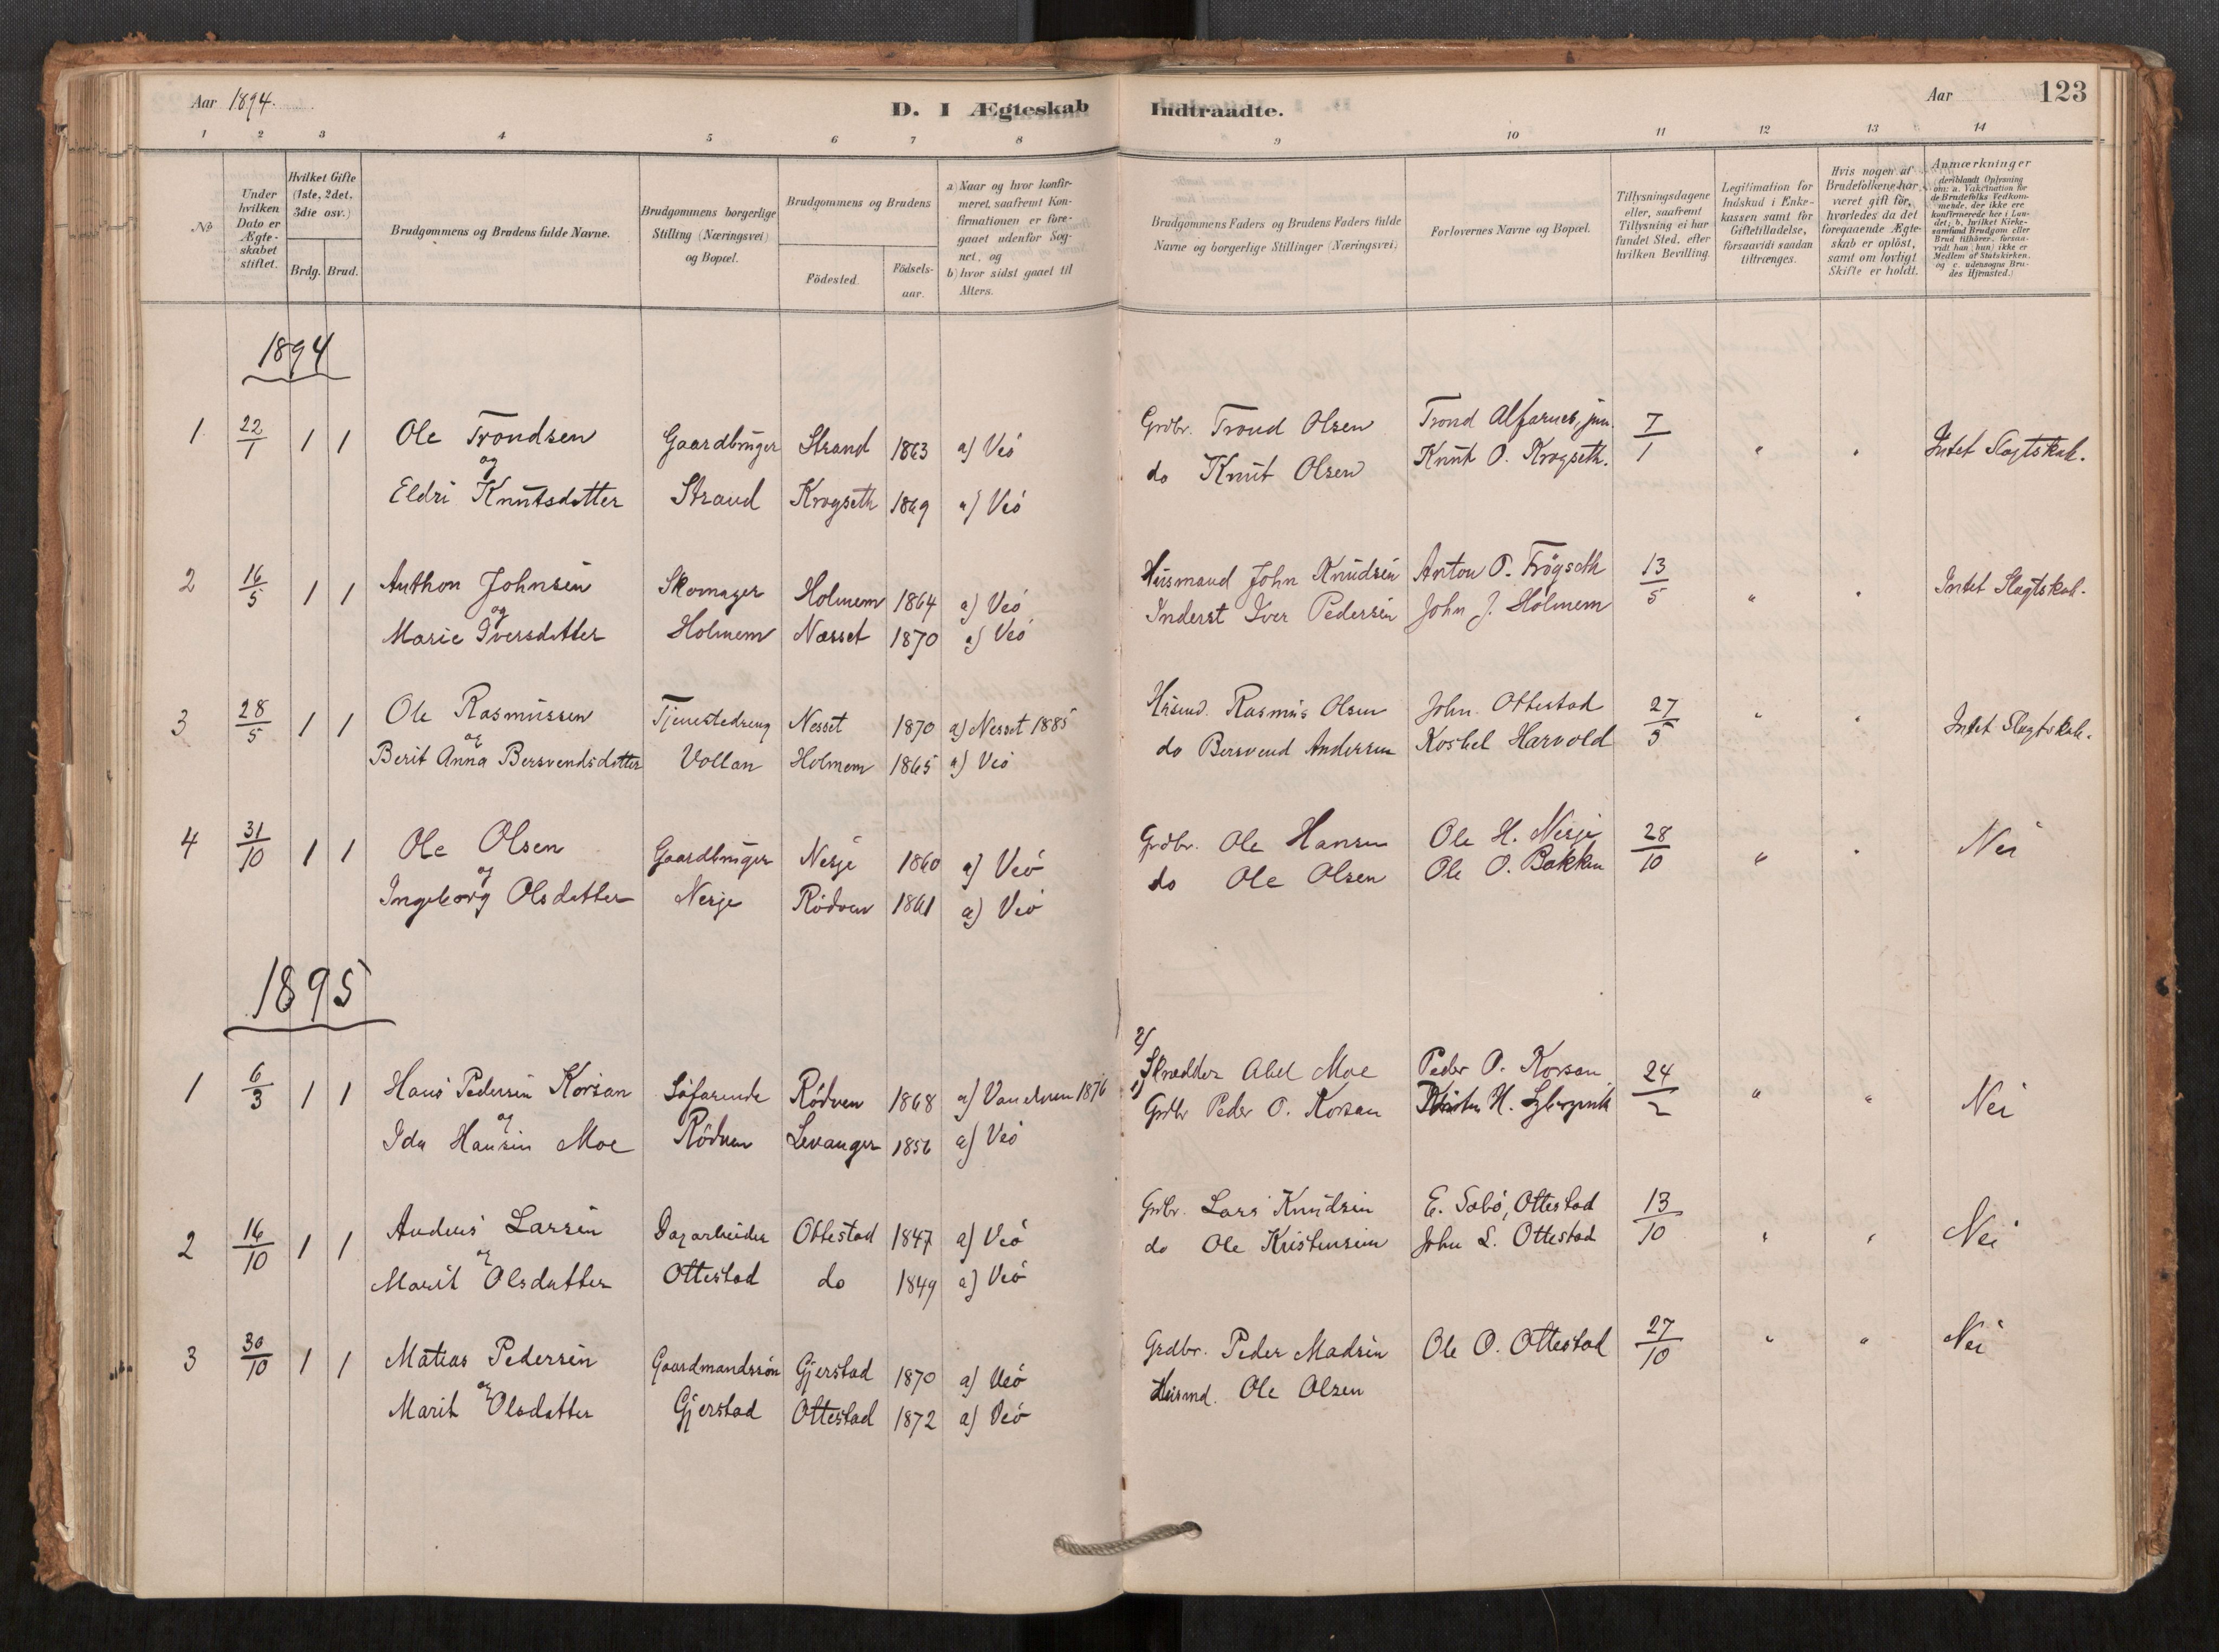 Aar 1894.
D. I Ægteskab Indtraadte.
Aar 123
1 2 3 4 5 6 7 8 9 10 11 12 13 14
No
Under hvilken Dato er Ægte-skabet stiftet.
Hvilket Gifte (1ste, 2det, 3die osv.)
Brdg. Brud.
Brudgommens og Brudens fulde Navne.
Brudgommens borgerlige Stilling (Næringsvei) og Bopæl.
Brudgommens og Brudens
Födested.
Födsels-aar.
a) Naar og hvor konfir-meret, saafremt Kon-firmationen er fore-gaaet udenfor Sog-net, og
b) hvor sidst gaaet til Alters.
Brudgommens Faders og Brudens Faders fulde Navne og borgerlige Stillinger (Næringsvei)
Forlovernes Navne og Bopæl.
Tillysningsdagene eller, saafremt Tillysning ei har fundet Sted, efter hvilken Bevilling.
Legitimation for Indskud i Enke-kassen samt for Giftetilladelse, forsaavidt saadan tiltrænges.
Hvis nogen af Brudefolkene har været gift før, hvorledes da det foregaaende Ægte-skab er oplöst, samt om lovligt Skifte er holdt.
Anmærkninger
deriblandt Oplysning om: a. Vakcination for de Brudefolks Vedkom-mende, der ikke ere konfirmerede her i Lan-det; b. hvilket Kirke-samfund Brudgom eller Brud tilhører, forsaa-vidt han (hun) ikke er Medlem af Statskirken, og c. udensogns Bru-des Hjemsted.)
1894
1 22/1 1 1 Ole Trondsen Gaardbruger Strand 1863 a) Veö Grdbr. Trond Olsen Trond Alfarnes, jun. 7/1 " " Intet Slagtskab.
og
Eldri Knutsdatter Strand Krogseth 1869 a) Veö do Knut Olsen Knut O. Krogseth.
2 16/5 1 1 Anthon Johnsen Skomager Holmem 1864 a) Veö Husmand John Knudsen Anton O. Frøgseth 13/5 " " Intet Slagtskab.
og
Marie Iversdatter Holmem Næsset 1870 a) Veö Inderst Iver Pedersen John J. Holmem
3 28/5 1 1 Ole Rasmussen Tjenestedreng Nesset 1870 a) Nesset 1885 Husmd. Rasmus Olsen John Ottestad 27/5 " " Intet Slagtskab.
og
Berit Anna Bersvendsdatter Vollan Holmem 1865 a) Veö do Bersvend Andersen Harvold
4 31/10 1 1 Ole Olsen Gaardbruger Nesje 1860 a) Veö Grdbr. Ole Hansen Ole H. Nesje 28/10 " " Nei
og
Ingeborg Olsdatter Nesje Rödven 1861 a) Veö do Ole Olsen Ole O. Bakken
1895
1 6/3 1 1 Hans Pedersen Korsan Söfarende Rödven 1868 a) 1876 2) Skrædder Abel Moe Peder O. Korsan 24/2 " " Nei
og
Ida Hansin Moe Rödven Levanger 1856 a) Veö 1) Grdbr Peder O. Korsan H.
2 16/10 1 1 Anders Larsen Dagarbeider Ottestad 1847 a) Veö Grdbr. Lars Knudsen E. Sabö, Ottestad 13/10 " " Nei
og
Marit Olsdatter Ottestad do 1849 a) Veö do Ole Kristensen John L. Ottestad
3 30/10 1 1 Matias Pedersen Gaardmandssön Gjerstad 1870 a) Veö Grdbr. Peder Madsen Ole O. Ottestad 27/10 " " Nei
og
Marit Olsdatter Gjerstad Ottestad 1872 a) Veö Husmd. Ole Olsen